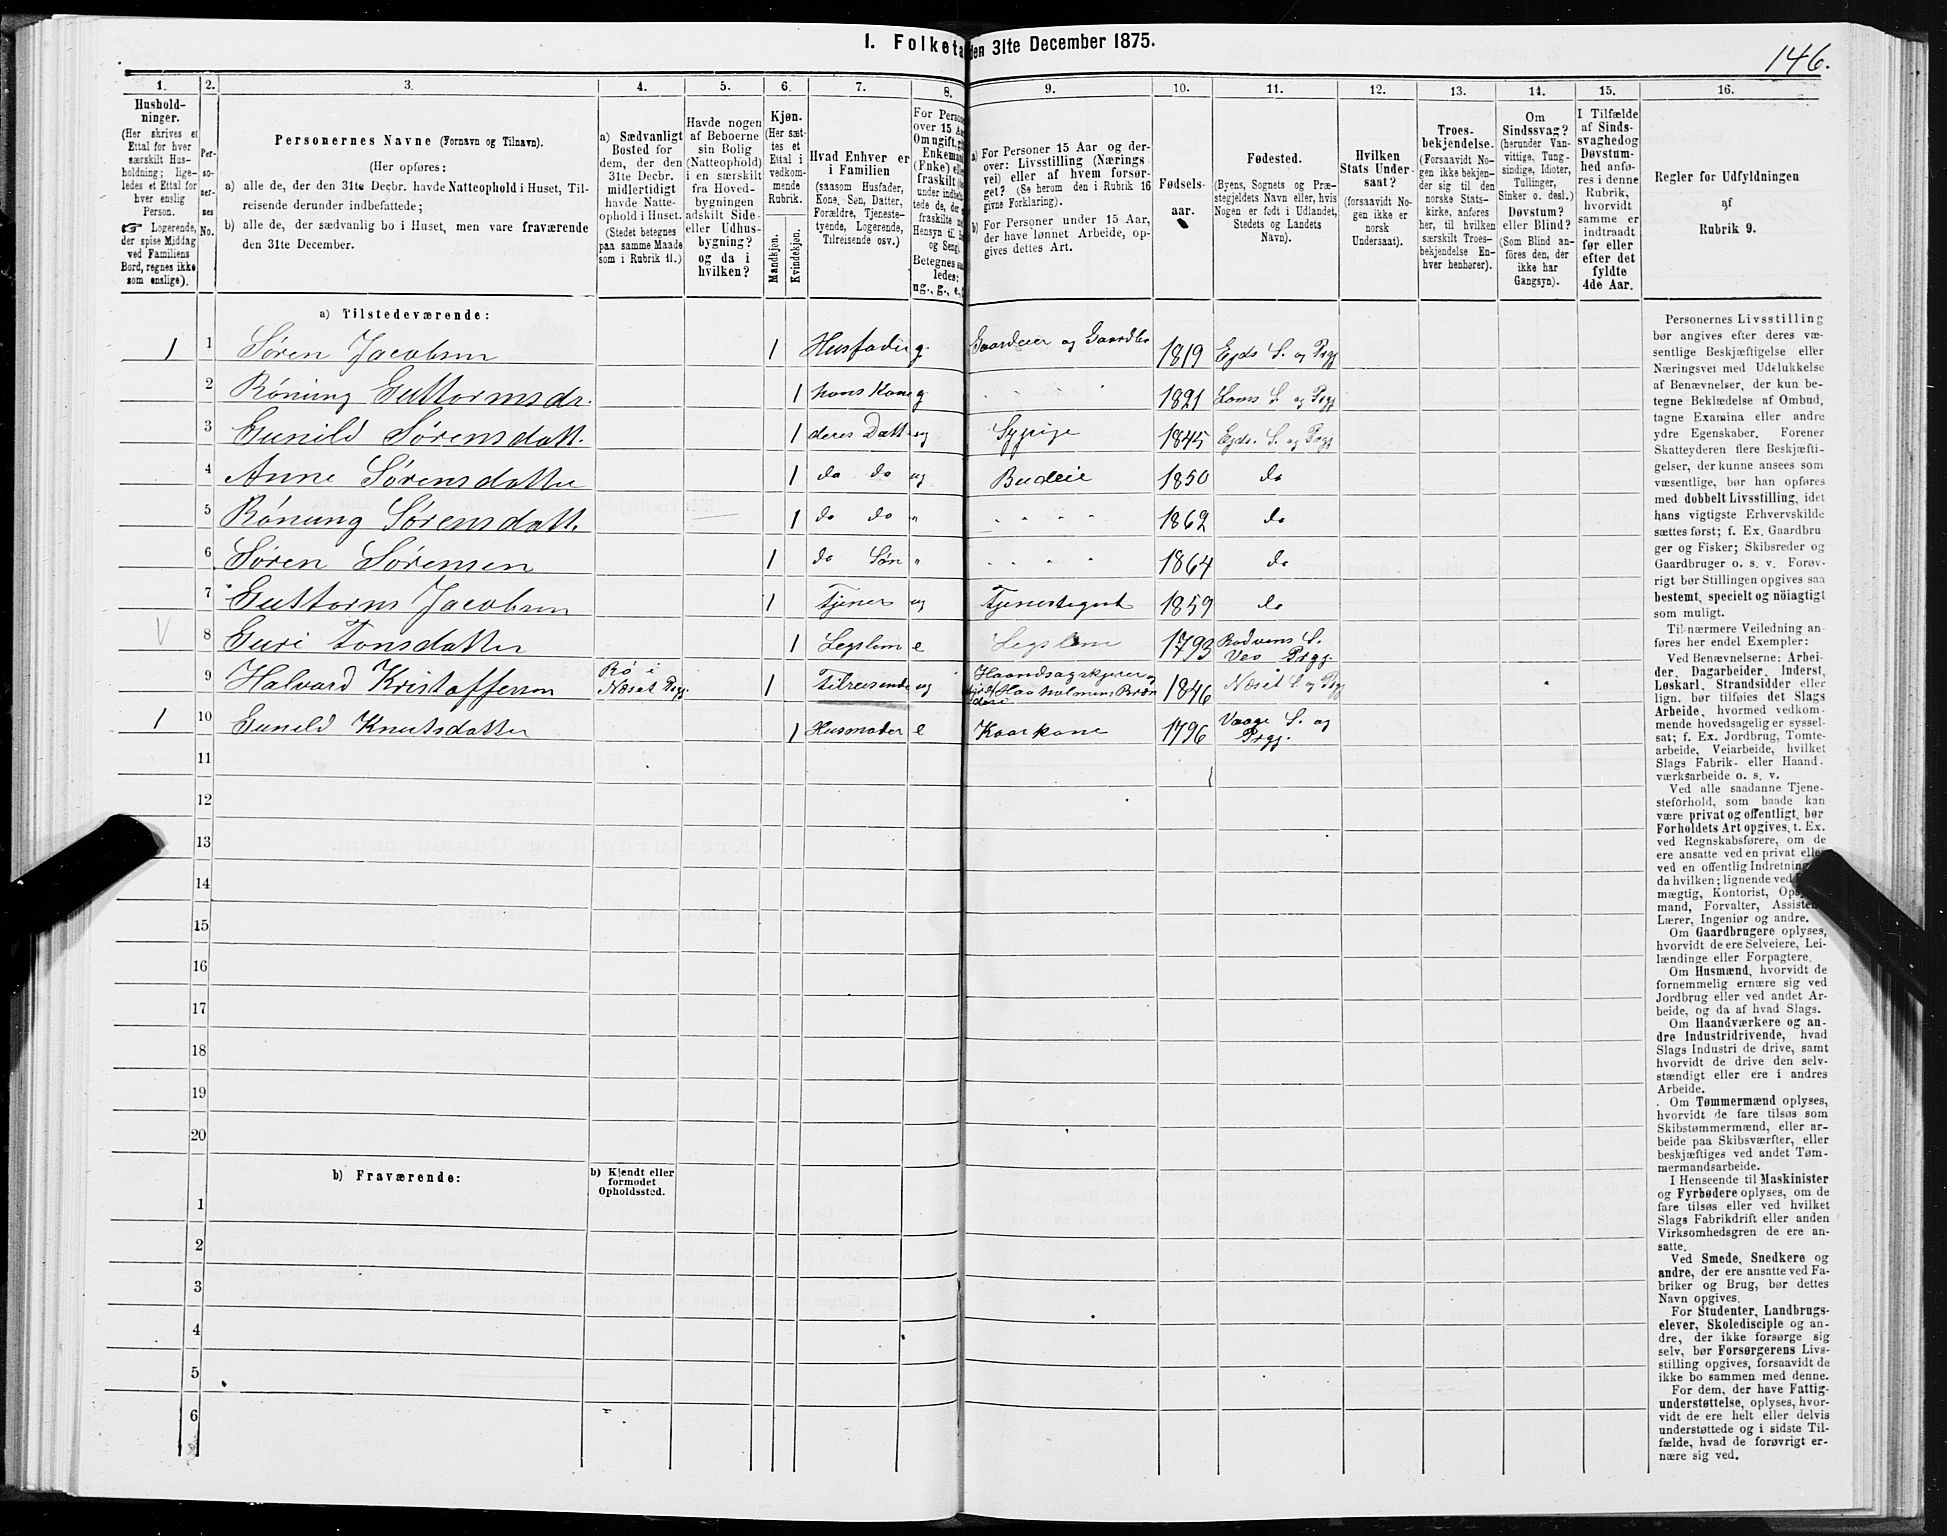 I. Folketa den 31te December 1875.
146.
1.
2.
3.
4.
5.
6.
7.
8.
9.
10.
11.
12.
13.
14.
15.
16.
Hushold-
ninger.
(Her skrives et
Ettal for hver
særskilt Hus-
holdning; lige-
ledes et Ettal for
hver enslig
Person.
☞ Logerende,
der spise Middag
ved Familiens
Bord, regnes ikke
som enslige).
Per-
so-
ner-
nes
No.
Personernes Navne (Fornavn og Tilnavn).
(Her opføres:
a) alle de, der den 31te Decbr. havde Natteophold i Huset, Til-
reisende derunder indbefattede;
b) alle de, der sædvanlig bo i Huset, men vare fraværende
den 31te December.
a) Sædvanligt
Bosted for
dem, der den
31te Decbr.
midlertidigt
havde Natte-
ophold i Huset.
(Stedet betegnes
paa samme Maade
som i Rubrik 11.)
Havde nogen
af Beboerne
sin Bolig
(Natteophold)
i en særskilt
fra Hoved-
bygningen
adskilt Side-
eller Udhus-
bygning?
og da i
hvilken?
Kjøn.
(Her sæt-
tes et
Ettal i
vedkom-
mende
Rubrik.
Mandkjøn.
Kvindekjøn.
Hvad Enhver er
i Familien
(saasom Husfader,
Kone, Søn, Datter,
Forældre, Tjeneste-
tyende, Logerende,
Tilreisende osv.)
For Perso
over 15 Aa
Om ugift, g
Enkeman
(Enke) el
fraskilt
under indbe
tede de,
fraskilte
Hensyn til
og Seng).
Betegnes saa
ledes:
ug., g., e.,
a) For Personer 15 Aar og der-
over: Livsstilling (Nærings
vei) eller af hvem forsør-
get? (Se herom den i Rubrik 16
givne Forklaring).
b) For Personer under 15 Aar,
der have lønnet Arbeide, op-
gives dettes Art.
Fødsels-
aar.
Fødested.
(Byens, Sognets og Præ-
stegjeldets Navn eller, hvis
Nogen er født i Udlandet,
Stedets og Landets
Navn).
Hvilken
Stats Under-
saat?
(forsaavidt No-
gen ikke er
norsk
Undersaat).
Troes-
bekjendelse.
(Forsaavidt No-
gen ikke bekjen-
der sig til den
norske Stats-
kirke, anføres
her, til hvilken
særskilt Troes-
bekjendelse En-
hver henhører).
Om
Sindssvag?
(herunder Van-
vittige, Tung-
sindige, Idioter,
Tullinger,
Sinker o. desl.)
Døvstum?
eller Blind?
(Som Blind an-
føres den, der
ikke har
Gangsyn).
I Tilfælde
af Sinds-
svaghed og
Døvstum-
hed anfø-
res i denne
Rubrik,
hvorvidt
samme er
indtraadt
før eller
efter det
fyldte
4de Aar.
Regler for Udfyldningen
af
Rubrik 9.
a) Tilstedeværende:
1 1 Søren Jacobsen 1 Husfader g. Gaardeier og 1819 Egds S. og Prgj
2 Rønnug Guttormsdr. 1 hans Kone g 1821 Loms S. og Prgj
3 Gunild Sørensdatt. 1 deres Datt ug Sypige 1845 Egds. S. og Prgj
4 Anne Sørensdatter 1 do do ug Budeie 1850 do
5 Rønnug Sørensdatt. 1 do do " 1862 do
6 Søren Sørensen 1 do Søn " 1864 do
7 Guttorm Jacobsen 1 Tjener ug Tjenestegut 1859 do
8 Guri Tonsdatter 1 Legslem e Legslem 1793 Rødvens S.
Veø Prgj.
9 Halvard Kristofferson Rø i
Næset Prgj. 1 Tilreisende ug 1846 Næset S. og Prgj
1 10 Gunild Knutsdatter 1 Husmoder e Kaarkone 1796 Vaage S. og
Prgj.
11
12
13
14
15
16
17
18
19
20
b) Fraværende:
b) Kjendt eller
formodet
Opholdssted.
1
2
3
4
5
6
Personernes Livsstilling
bør angives efter deres væ-
sentlige Beskjæftigelse eller
Næringsvei med Udelukkelse
af Benævnelser, der kun be-
tegne Beklædelse af Ombud,
tagne Examina eller andre
ydre Egenskaber. Forener
Skatteyderen flere Beskjæfti-
gelser, der kunne ansees som
væsentlige, bør han opføres
med dobbelt Livsstilling, idet
hans vigtigste Erhvervskilde
sættes først; f. Ex. Gaardbru
ger og Fisker; Skibsreder og
Gaardbruger o. s. v. Forøv-
rigt bør Stillingen opgives saa
bestemt, specielt og nöiagtigt
som muligt.
Til nærmere Veiledning an-
føres her endel Exempler:
Ved Benævnelserne: Arbei-
der, Dagarbeider, Inderst,
Løskarl, Strandsidder eller
lign. bør tilføies det Slags
Arbeide, hvormed vedkom-
mende hovedsagelig er syssel-
sat; f. Ex. Jordbrug, Tomte-
arbeide, Veiarbeide, hvilket
Slags Fabrik- eller Haand-
værksarbeide o. s. v.
Ved alle saadanne Tjene-
steforhold, som baade kan
være privat og offentligt, bør
Forholdets Art opgives, t. Ex.
ved Regnskabsførere, om de
ere ansatte ved en privat eller
ved en offentlig Indretning
da hvilken; lignende ved
mægtig, Kontorist, Opsyns-
mand, Forvalter, Assistent
Lærer, Ingeniør og andre.
Om Gaardbrugere oplyses,
hvorvidt de ere Selveiere, Lei-
lændinge eller Forpagtere.
Om Husmænd, hvorvidt de
fornemmelig ernære sig ved
Jordbrug eller ved andet Ar-
beide, og da af hvad Slags.
Om Haandværkere og an-
dre Industridrivende, hvad
Slags Industri de drive, samt
hvorvidt de drive den selv-
stændigt eller ere i andres
Arbeide.
Om Tømmermænd oplyses,
hvorvidt de fare tilsøs som
Skibstømmermænd, eller ar-
beide paa Skibsværfter, eller
beskjæftiges ved andet Tøm-
mermandsarbeide.
I Henseende til Maskinister
og Fyrbødere oplyses, om de
fare tilsøs eller ved hvilket
Slags Fabrikdrift eller anden
Virksomhedsgren de ere an-
satte.
Ved Smede, Snedkere og
andre, der ere ansatte ved Fa-
briker og Brug, bør dettes
Navn opgives.
For Studenter, Landbrugs-
elever, Skoledisciple og an-
dre, der ikke forsørge sig
selv, bør Forsørgerens Livs-
stilling opgives, forsaavidt de
ikke bo sammen med denne.
For dem, der have Fattig-
understøttelse, oplyses, hvor-
vidt de ere helt eller delvis
understøttede og i sidste Til-
fælde, hvad de forøvrigt er-
nære sig ved.